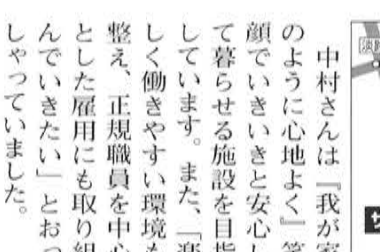 中村さんは『我が家
のように心地よく』笑
顔でいきいきと安心し
て暮らせる施設を目指
しています。また、「楽
しく働きやすい環境も
整え、正規職員を中心
とした雇用にも取り組
んでいきたい」とおっ
しゃっていました。